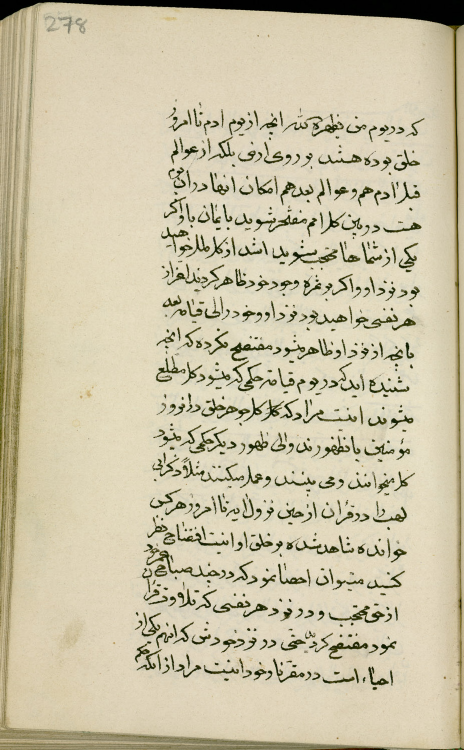 278
که در یوم من یظهره الله انچه از یوم ادم تا امروز
خلق بوده هستند بر روی ارض بلکه از عوالم
قبل ادم هم و عوالم بعد هم امکان انها در ان یوم
هست در بین کل امم مفتخر شوید بایمان باو اگر
یکی از شماها محتجب شوید اشد از کل ملل خواهید
بود نزد او و اگر بثمره وجود خود ظاهر گردید اعز از
هر نفسی خواهید بود نزد او و خود را الی قیامه بعد
بانچه از نزد او ظاهر میشود مفتضح نکرده که انچه
شنیده اید که در یوم قیامه حکمی که میشود کل مطلع
میشوند اینست مراد که کل جوهر خلق در ان روز
مؤمنین بان ظهورند و الی ظهور دیگر حکمی که میشود
کل میخوانند و می بینند و عمل میکنند مثلا ذکر ابی
لهب را در قران از حین نزول ایه تا امروز هر کس
خوانده شاهد شده بر خلق او اینست افتضاح نظر
کنید میتوان احصا نمود که در چند صباح
از حق محتجب و در نزد هر نفسی که تلاوت قران
نمود مفتضح کردید حتی در نزد خودش که انهم یکی از
احیاء است در مقر نار خود اینست مراد از انکه